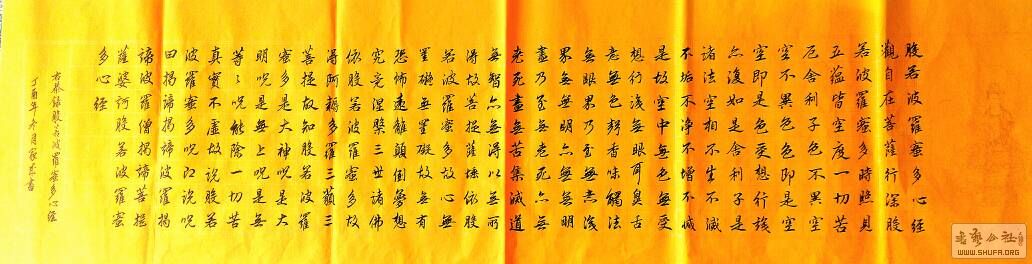 般若波羅蜜多心經
觀自在菩薩行深般
若波羅蜜多時照見
五蘊皆空度一切苦
厄舍利子色不異空
空不異色色即是空
空即是色受想行識
亦復如是舍利子是
諸法空相不生不滅
不垢不淨不增不減
是故空中無色無受
想行識無眼耳鼻舌
意無色聲香味觸法
無眼界乃至無意識
界無無明亦無無明
盡乃至無老死亦無
老死盡無苦集滅道
無智亦無得以無所
得故菩提薩埵依般
若波羅蜜多故心無
罣礙無罣礙故無有
恐怖遠離顛倒夢想
究竟涅槃三世諸佛
依般若波羅蜜多故
得阿耨多羅三藐三
菩提故知般若波羅
蜜多是大神呪是大
明呪是無上呪是無
等〻呪能除一切苦
真實不虛故說般若
波羅蜜多呪即說呪
曰揭諦揭諦波羅揭
諦波羅僧揭諦菩提
薩婆訶般若波羅蜜
多心經
右恭錄般若波羅蜜多心經
丁酉年月書
WWW.SHUFA.ORG